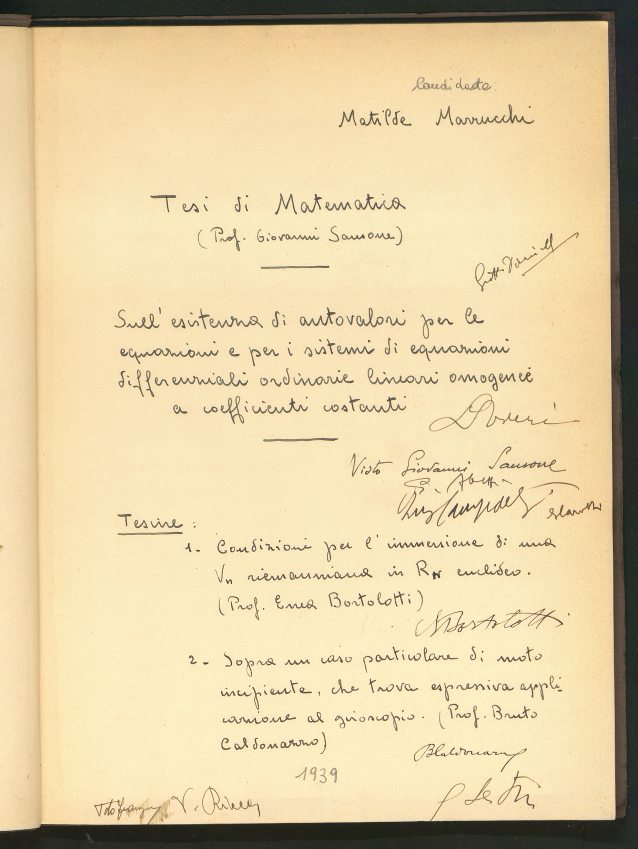 Candidata
Matilde Marrucchi
Tesi di Matematica
(Prof. Giovanni Sansone)
Sull'esistenza di autovalori per le
equazioni e per i sistemi di equazioni
differenziali ordinarie lineari omogenee
a coefficienti costanti
Visto Giovanni Sansone
Tesine:
1- Condizioni per l'immersione di una
Vn riemanniana in RN euclideo.
(Prof. Enea Bortolotti)
EBortolotti
2- Sopra un caso particolare di moto
incipiente, che trova espressiva appli-
cazione al giroscopio. (Prof. Bruto
Caldonazzo)
BCaldonazzo
1939
V. Ricca